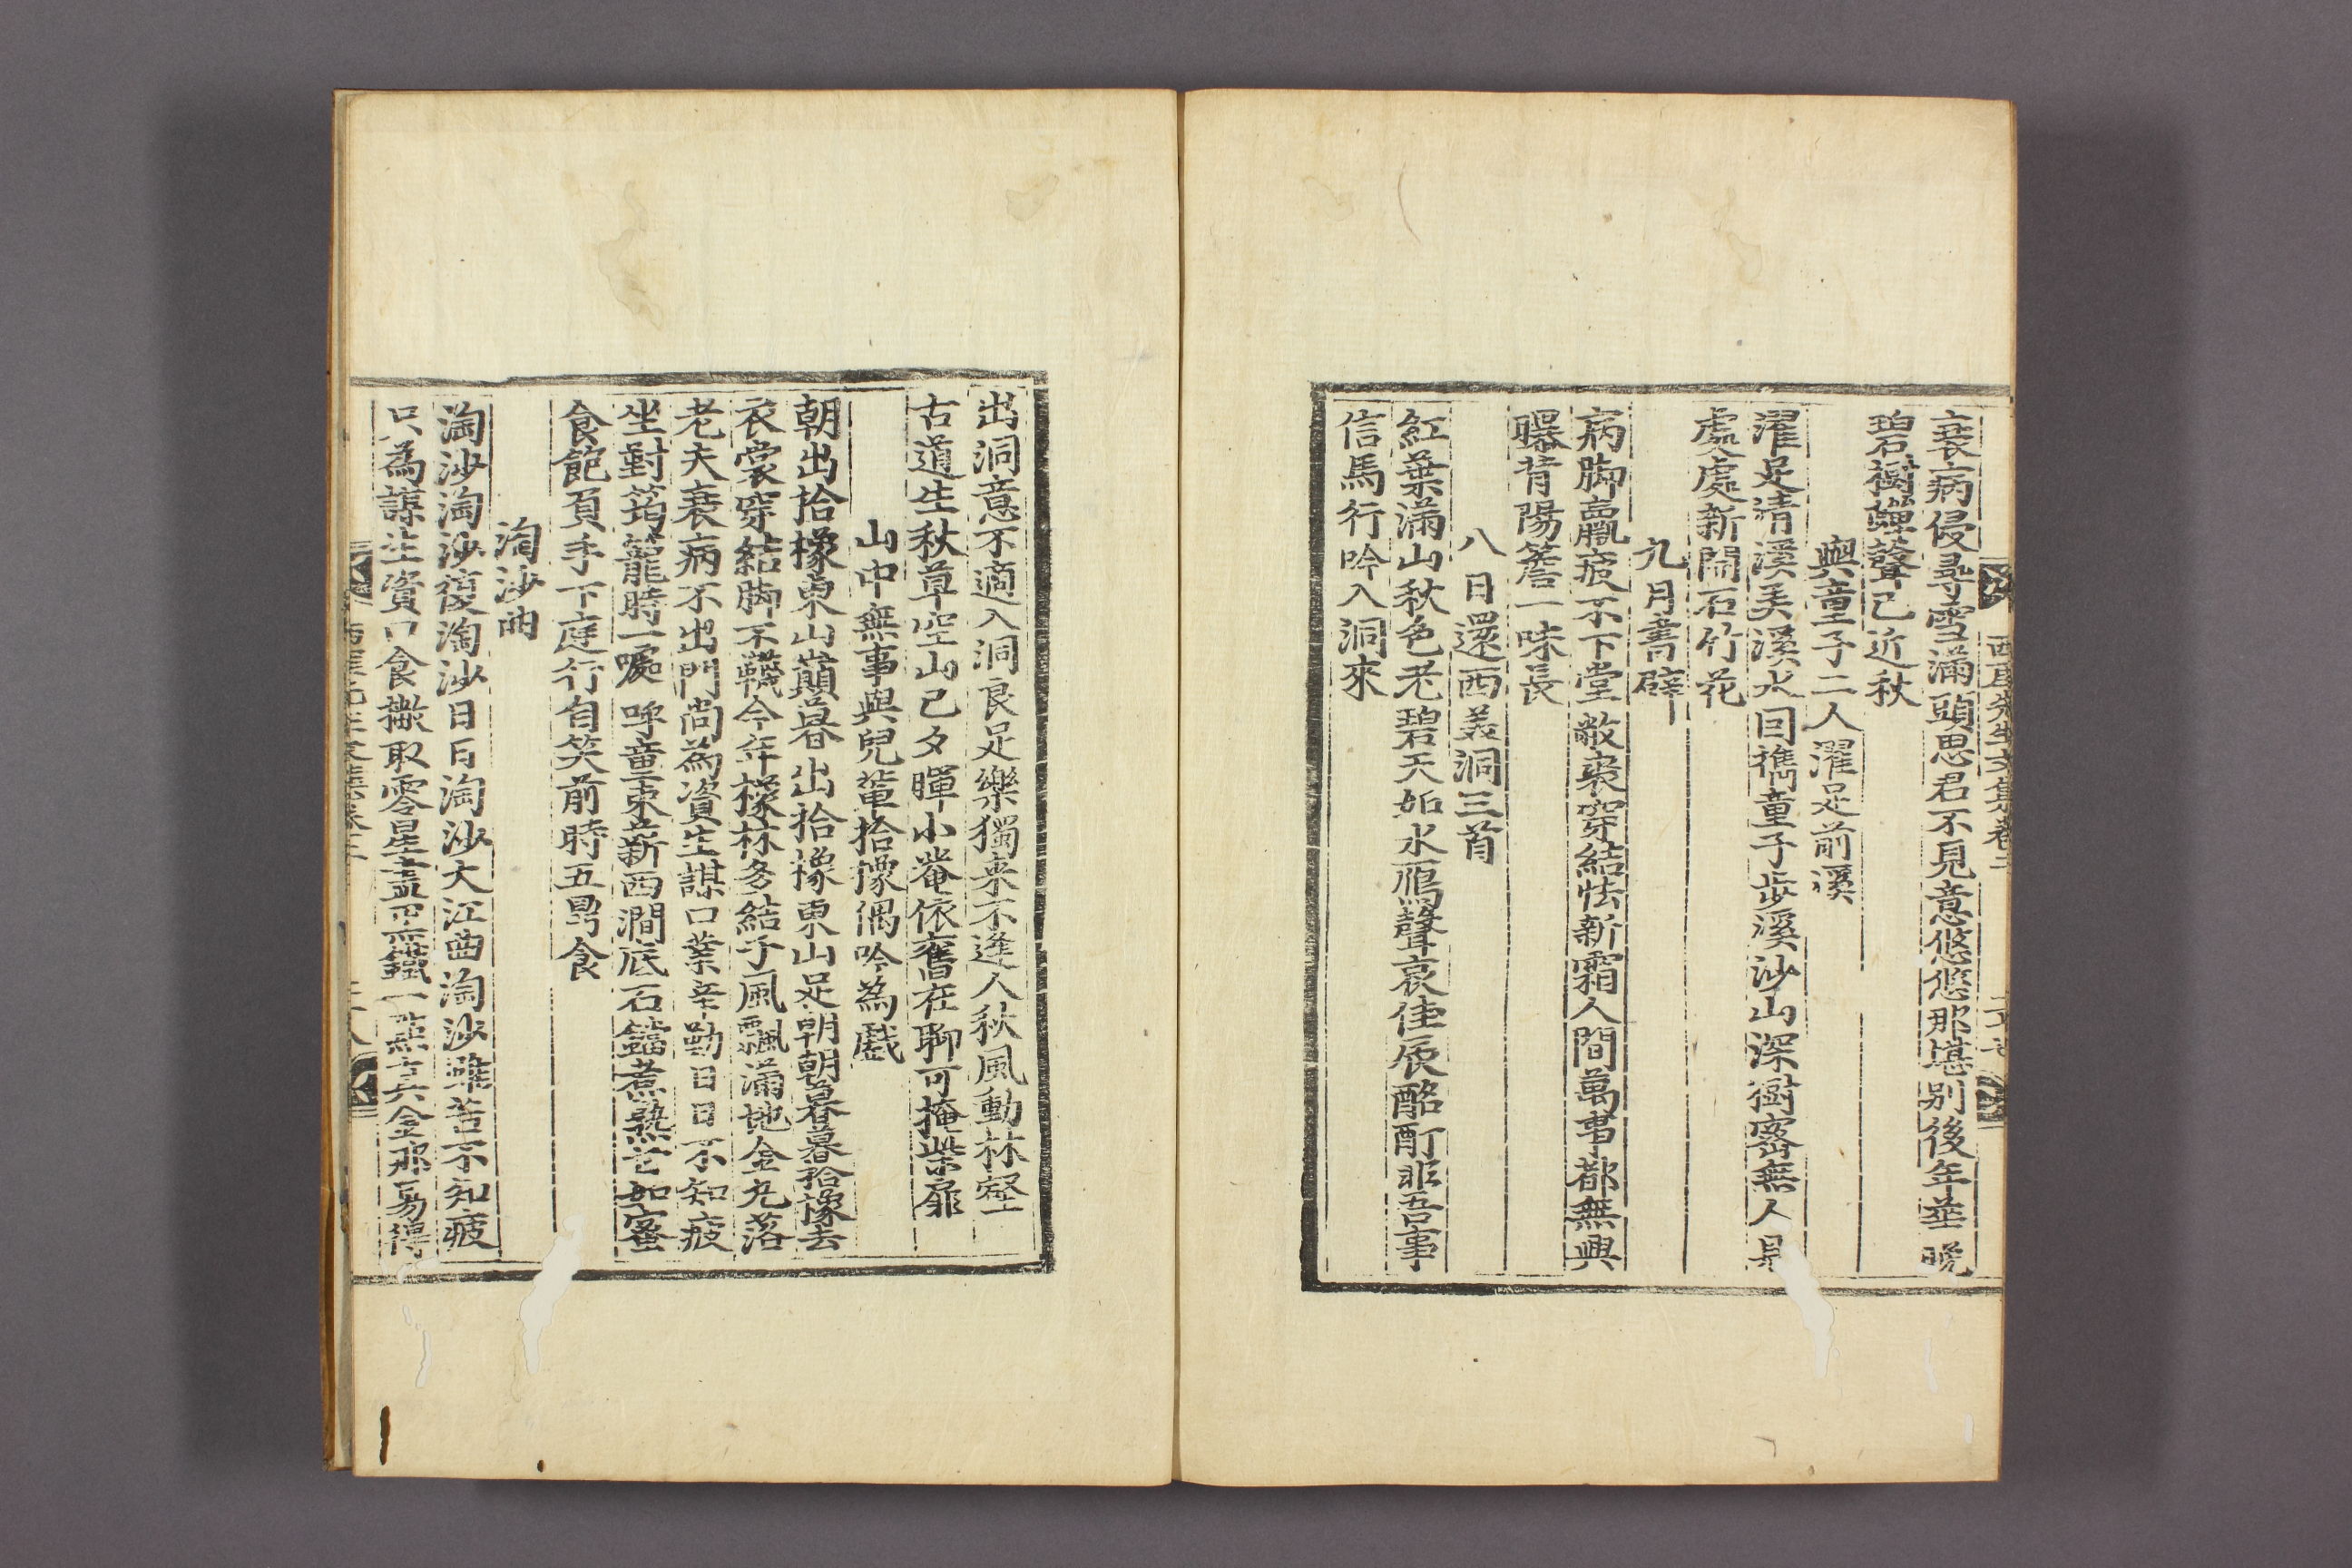 西厓先生文集卷二
衰病侵尋雪滿頭思君不見意悠悠那堪別後年華晚
碧樹蟬聲已近秋
與童子二人濯足前溪
濯足淸溪美溪水回携童子步溪沙山深樹密無人
處處新開石竹花
九月書壁
病脚羸疲不下堂敝裘穿結怯新霜人間萬事都無興
曝背陽簷一味長
八日還西美洞三首
紅葉滿山秋色老碧天如水鴈聲哀佳辰酩酊非吾事
信馬行吟入洞來
出洞意不適入洞良足樂獨來不逢人秋風動林壑
古道生秋草空山已夕暉小菴依舊在聊可掩柴扉
山中無事與兒輩拾橡偶吟為戲
朝出拾橡東山巔暮出拾橡東山足朝朝暮暮拾橡去
衣裳穿結脚不襪今年橡林多結子風飄滿地金丸落
老夫衰病不出門尚為資生謀口業辛勤日日不知疲
坐對筠籠時一噱呼童束薪西澗底石鐺煮熟甘如蜜
食飽負手下庭行自笑前時五鼎食
淘沙曲
淘沙淘沙復淘沙日日淘沙大江曲淘沙雖苦不知疲
只為謀生資口食撒取零星盡正鐵一點真金那易得